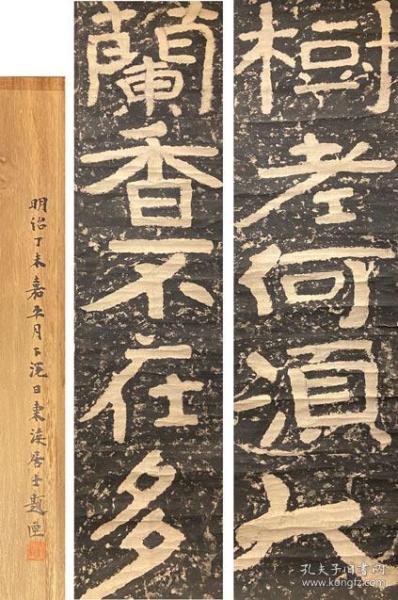 樹老何須大
蘭香不在多
明治丁未嘉平月下浣日東涘居士題匣
孔夫子旧书网
www.kongfz.com